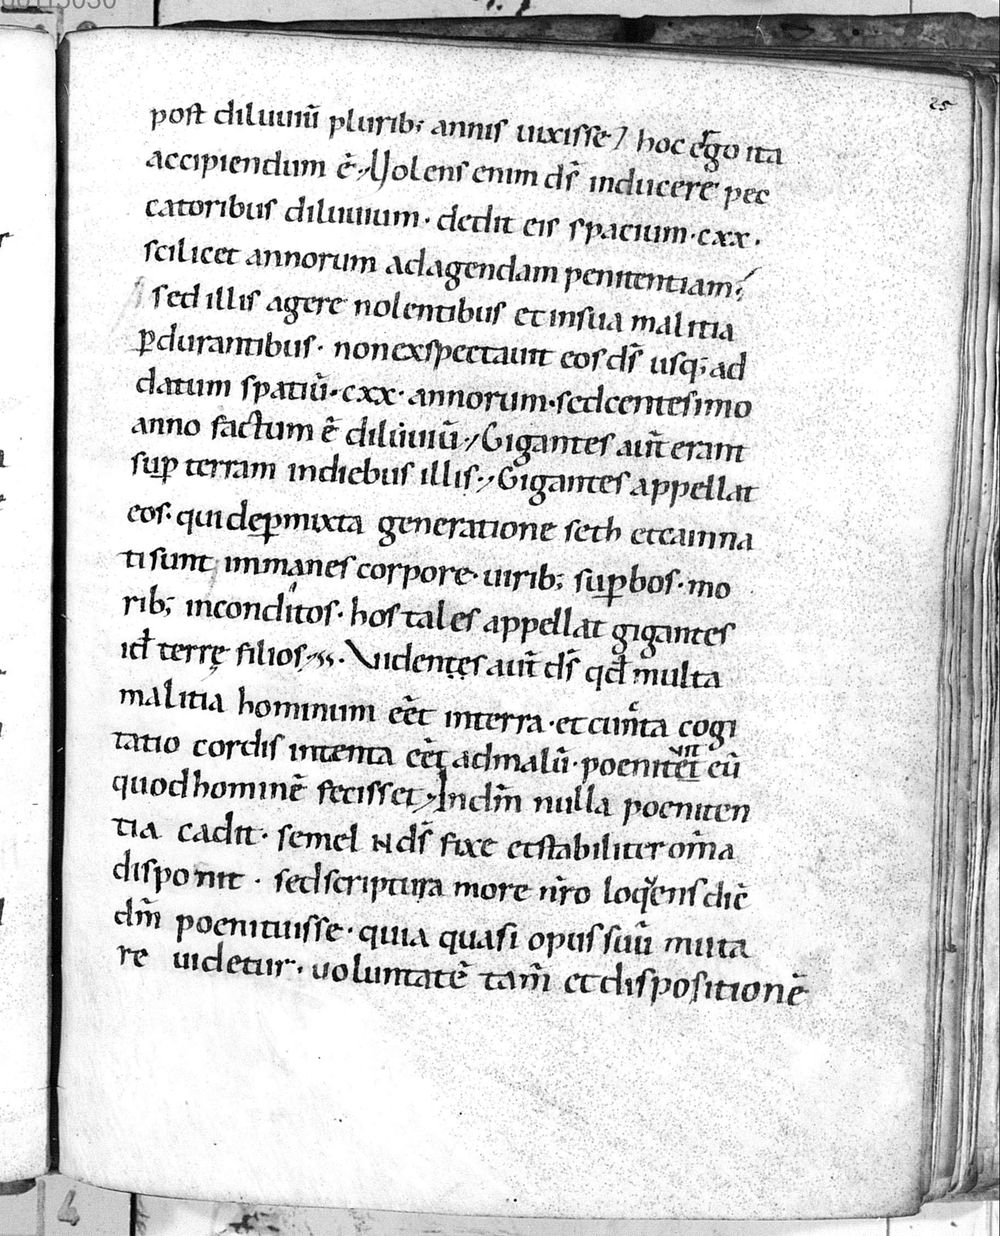 25
post diluuiū plurib; annis uixisse? hoc ergo ita
accipiendum ē. Uolens enim ds̄ inducere pec
catoribus diluuium · dedit eis spacium · cxx ·
scilicet annorum ad agendam penitentiam;
sed illis agere nolentibus et in sua malitia
ꝑdurantibus · non exspectauit eos ds̄ usq; ad
datum spatiū · cxx · annorum · sed centesimo
anno factum ē diluuiū. Gigantes aut̄ erant
suꝑ terram in diebus illis. Gigantes appellat
eos · qui de ꝑmixta generatione seth et cain na
ti sunt immanes corpore · uirib; suꝑbos · mo
rib; inconditos · hos tales appellat gigantes
id̄ terrę filios. Uidentes aut̄ ds̄ qd̄ multa
malitia hominum eēt in terra · et cun̄ta cogi
tatio cordis intenta eēt ad malū · poenitet eū
quod hominē fecisset. In dm̄ nulla poeniten
tia cadit · semel N ds̄ fixe et stabiliter om̄a
disponit · sed scriptura more nr̄o loquens dic̄
dm̄ poenituisse · quia quasi opus suū muta
re uidetur · uoluntatē tam̄ et dispositionē